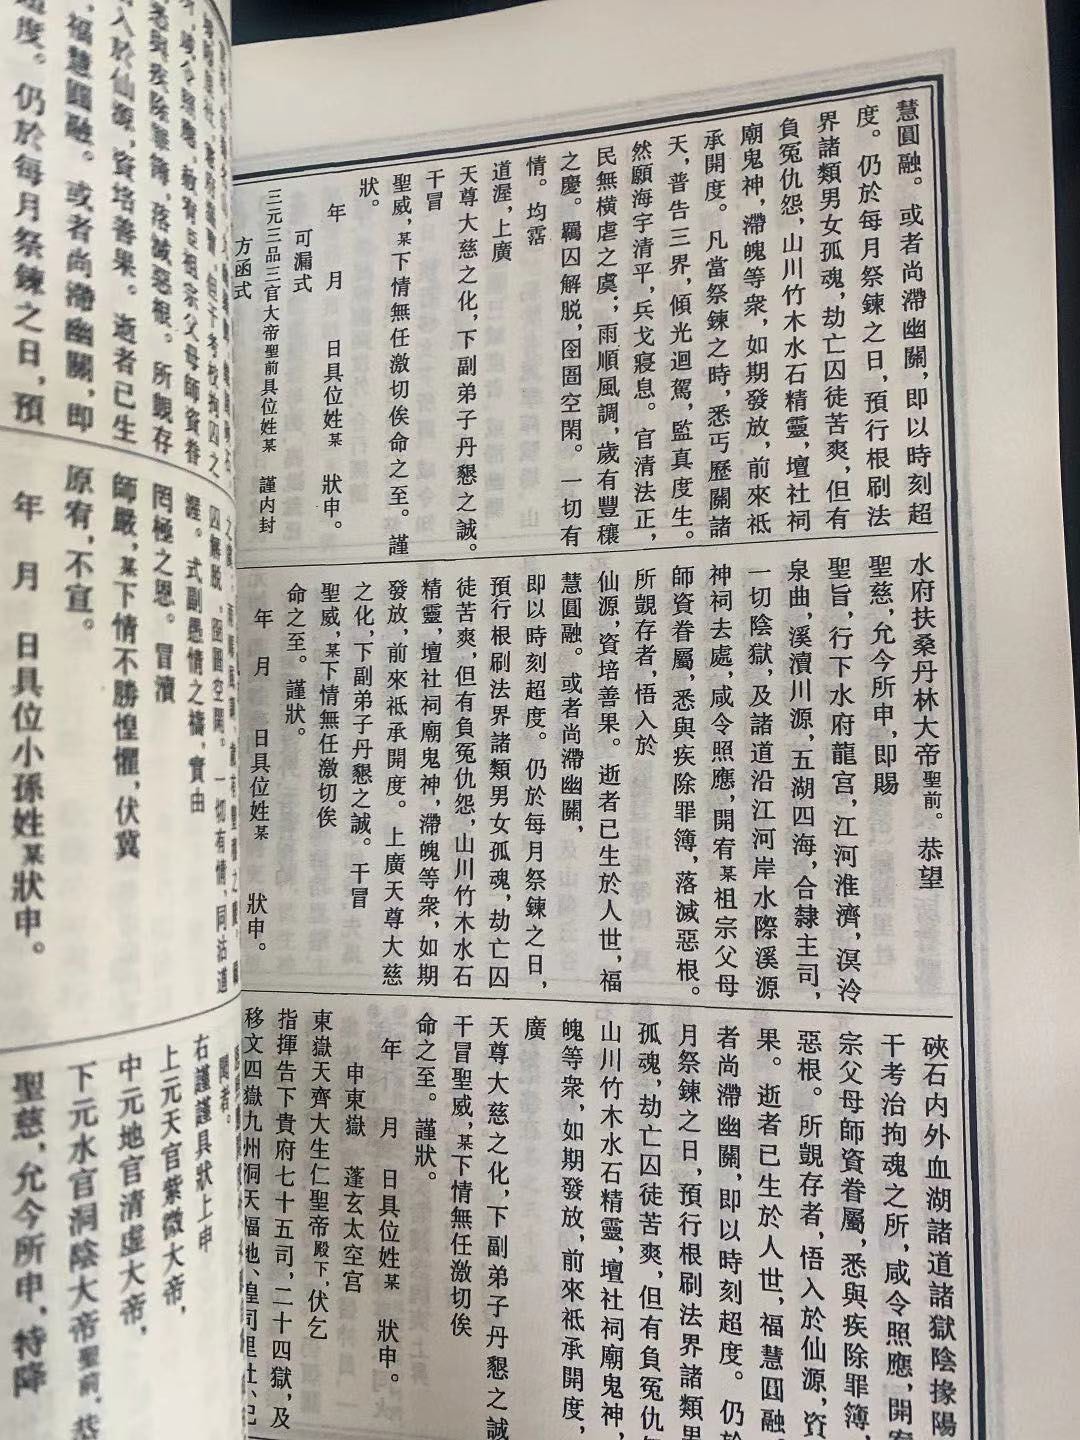 慧圓融。或者尚滯幽關，即以時刻超
度。仍於每月祭鍊之日，預行根刷法
界諸類男女孤魂，劫亡囚徒苦爽，但有
負冤仇怨，山川竹木水石精靈，壇社祠
廟鬼神，滯魄等衆，如期發放，前來祇
承開度。凡當祭鍊之時，悉丐歷關諸
天，普告三界，傾光迴駕，監真度生。
然願海宇清平，兵戈寢息。官清法正，
民無橫虐之虞；雨順風調，歲有豐穰
之慶。羈囚解脱，囹圄空閑。一切有
情。均霑
道渥，上廣
天尊大慈之化，下副弟子丹懇之誠。
干冒
聖威，某下情無任激切俟命之至。謹
狀。
年　月　日具位姓某　狀申。
可漏式
三元三品三官大帝聖前具位姓某　謹内封
方函式
水府扶桑丹林大帝聖前。恭望
聖慈，允今所申，即賜
聖旨，行下水府龍宮，江河淮濟，溟泠
泉曲，溪瀆川源，五湖四海，合隸主司，
一切陰獄，及諸道沿江河岸水際溪源
神祠去處，咸令照應，開宥某祖宗父母
師資眷屬，悉與疾除罪簿，落滅惡根。
所覬存者，悟入於
仙源，資培善果。逝者已生於人世，福
慧圓融。或者尚滯幽關，
即以時刻超度。仍於每月祭鍊之日，
預行根刷法界諸類男女孤魂，劫亡囚
徒苦爽，但有負冤仇怨，山川竹木水石
精靈，壇社祠廟鬼神，滯魄等衆，如期
發放，前來祇承開度。上廣天尊大慈
之化，下副弟子丹懇之誠。干冒
聖威，某下情無任激切俟
命之至。謹狀。
年　月　日具位姓某　狀申。
硤石内外血湖諸道諸獄陰掾陽
干考治拘魂之所，咸令照應，開宥
宗父母師資眷屬，悉與疾除罪簿，
惡根。所覬存者，悟入於仙源，資
果。逝者已生於人世，福慧圓融，
者尚滯幽關，即以時刻超度。仍於
月祭鍊之日，預行根刷法界諸類男
孤魂，劫亡囚徒苦爽，但有負冤仇
山川竹木水石精靈，壇社祠廟鬼神，
魄等衆，如期發放，前來祇承開度，
廣
天尊大慈之化，下副弟子丹懇之誠
干冒聖威，某下情無任激切俟
命之至。謹狀。
年　月　日具位姓某　狀申。
申東嶽　蓬玄太空宮
東嶽天齊大生仁聖帝殿下，伏乞
指揮告下貴府七十五司，二十四獄，及
移文四嶽九州洞天福地、皇司里社、己
入於仙源，資培善果。逝者已生
福慧圓融。或者尚滯幽關，即
度。仍於每月祭鍊之日，預
囚解脱，囹圄空閑。一切有情，同沾道
渥。式副愚情之禱，實由
罔極之恩。冒瀆
師嚴，某下情不勝惶懼，伏冀
原宥，不宣。
年　月　日具位小孫姓某狀申。
右謹謹具狀上申
上元天官紫微大帝，
中元地官清虛大帝，
下元水官洞陰大帝聖前，恭
聖慈，允今所申，特降